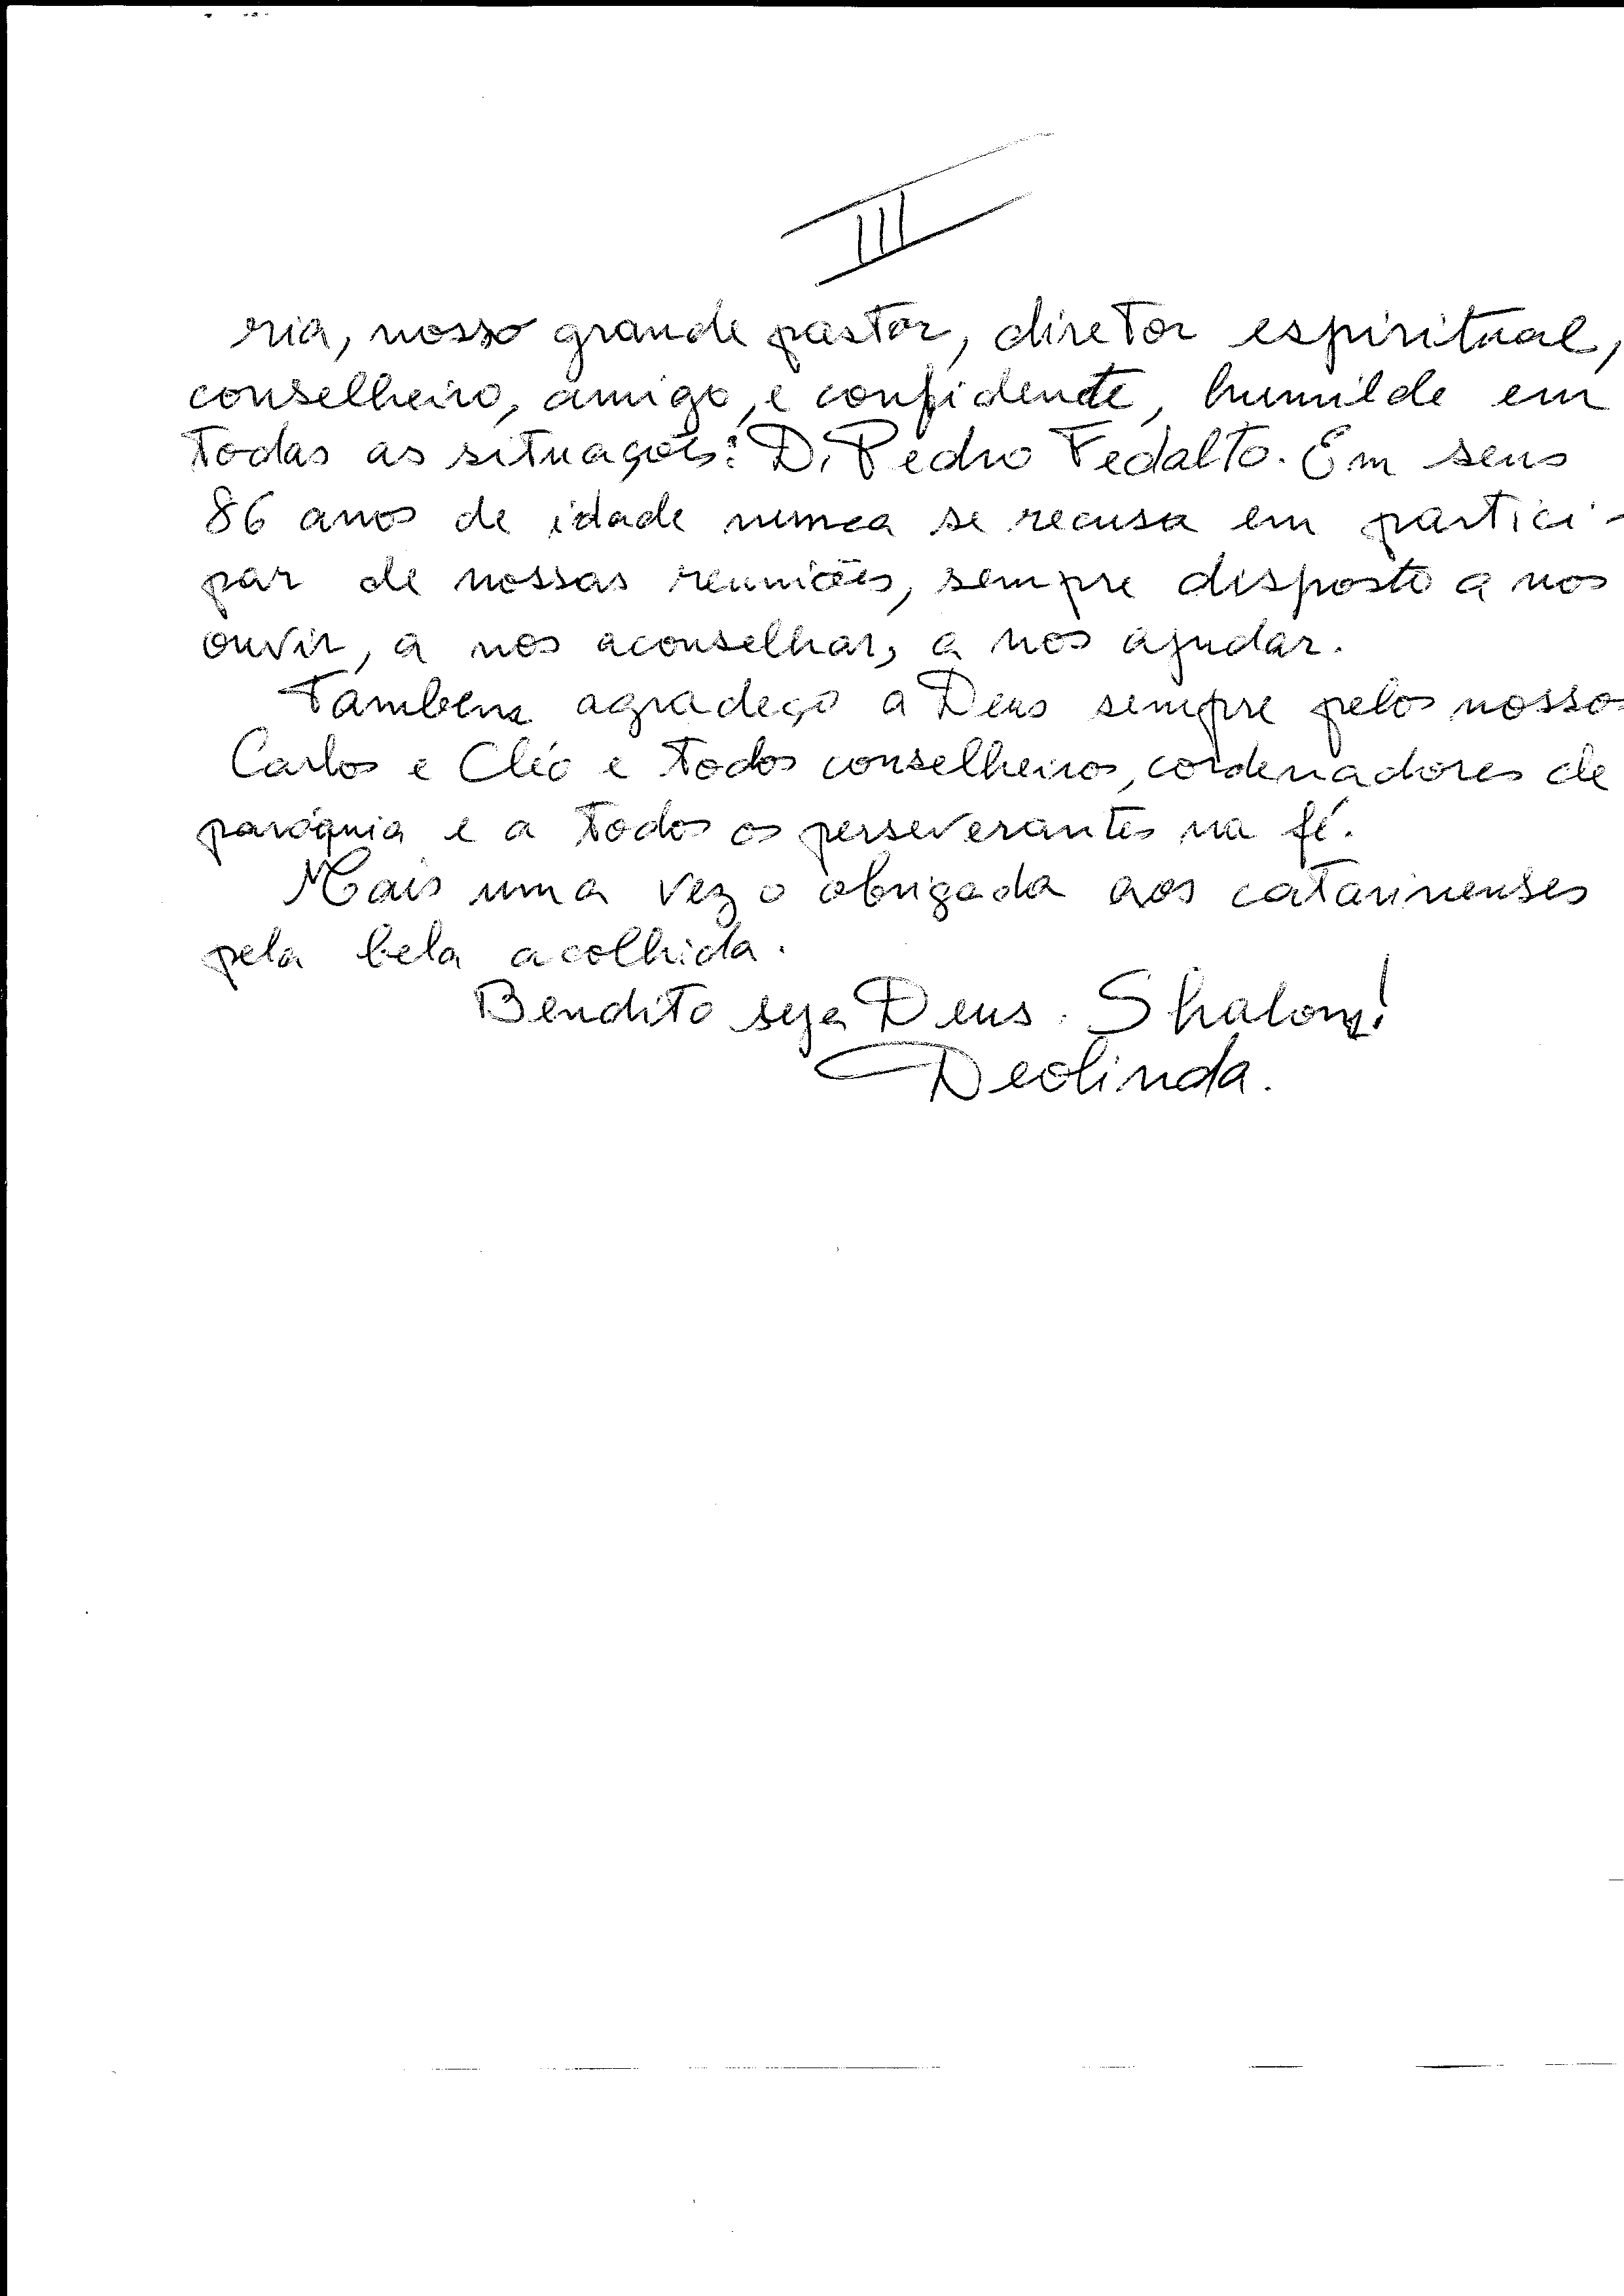 III
ria, nosso grande pastor, diretor espiritual,
conselheiro, amigo, e confidente, humilde em
todas as situações: D. Pedro Fedalto. Em seus
86 anos de idade nunca se recusa em partici-
par de nossas reuniões, sempre disposto a nos
ouvir, a nos aconselhar, a nos ajudar.
Tambem agradeço a Deus sempre pelos nossos
Carlos e Cléo e todos conselheiros, cordenadores de
paróquia e a todos os perseverantes na fé.
Mais uma vez o obrigada aos catarinenses
pela bela acolhida.
Bendito seja Deus. Shalom!
Deolinda.